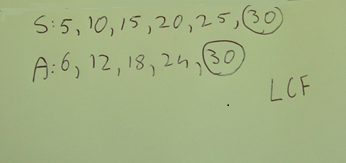 S:5, 10, 15, 20, 25, 30
A:6, 12, 18, 24, 30
LCF